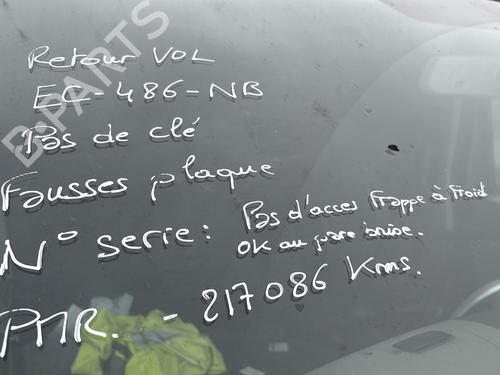 Retour VOL
EC-486-NB
Pas de clé
Fausses plaque
N° serie: Pas d'acces frappe à froid
OK au pare brise.
PMR. - 217086 Kms.
B-PARTS